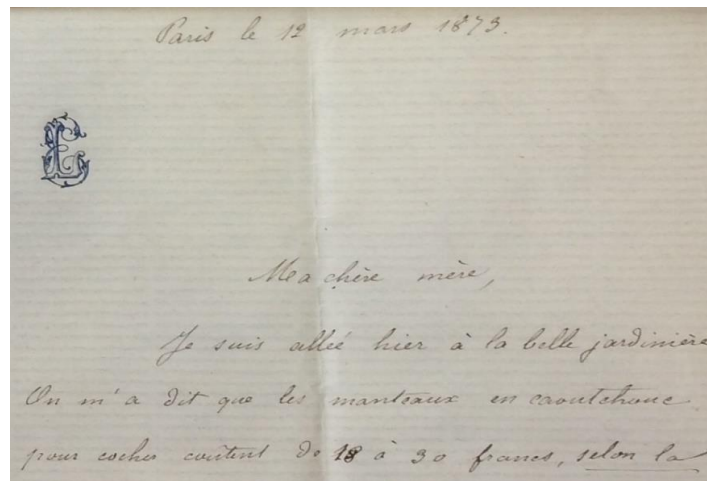 Paris le 12 mars 1873.
Ma chère mère,
Je suis allée hier à la belle jardinière
On m'a dit que les manteaux en caoutchouc
pour cocher coûtent de 18 à 30 francs, selon la